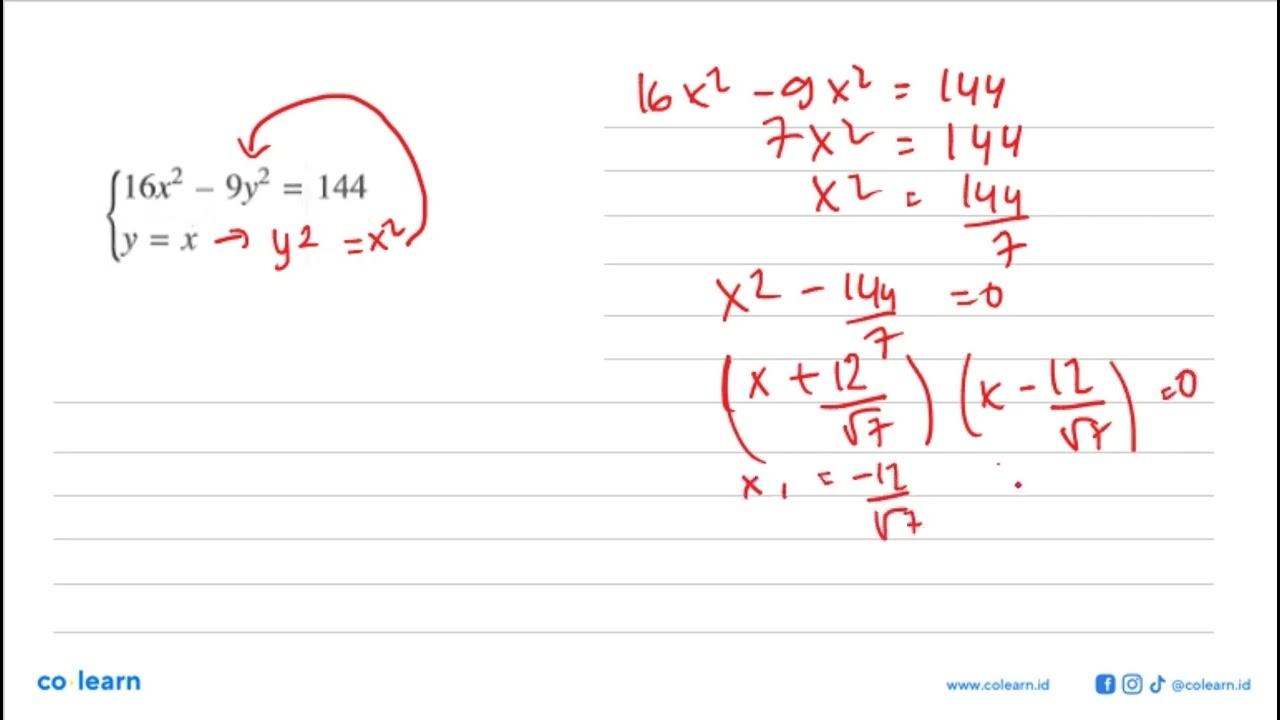 16x² – 9y² = 144
y = x → y² = x²
16x² - 9x² = 144
7x² = 144
x² = 144/7
x² - 144/7 = 0
(x + 12/√7) (x - 12/√7) = 0
x₁ = -12/√7
co·learn
www.colearn.id @colearn.id